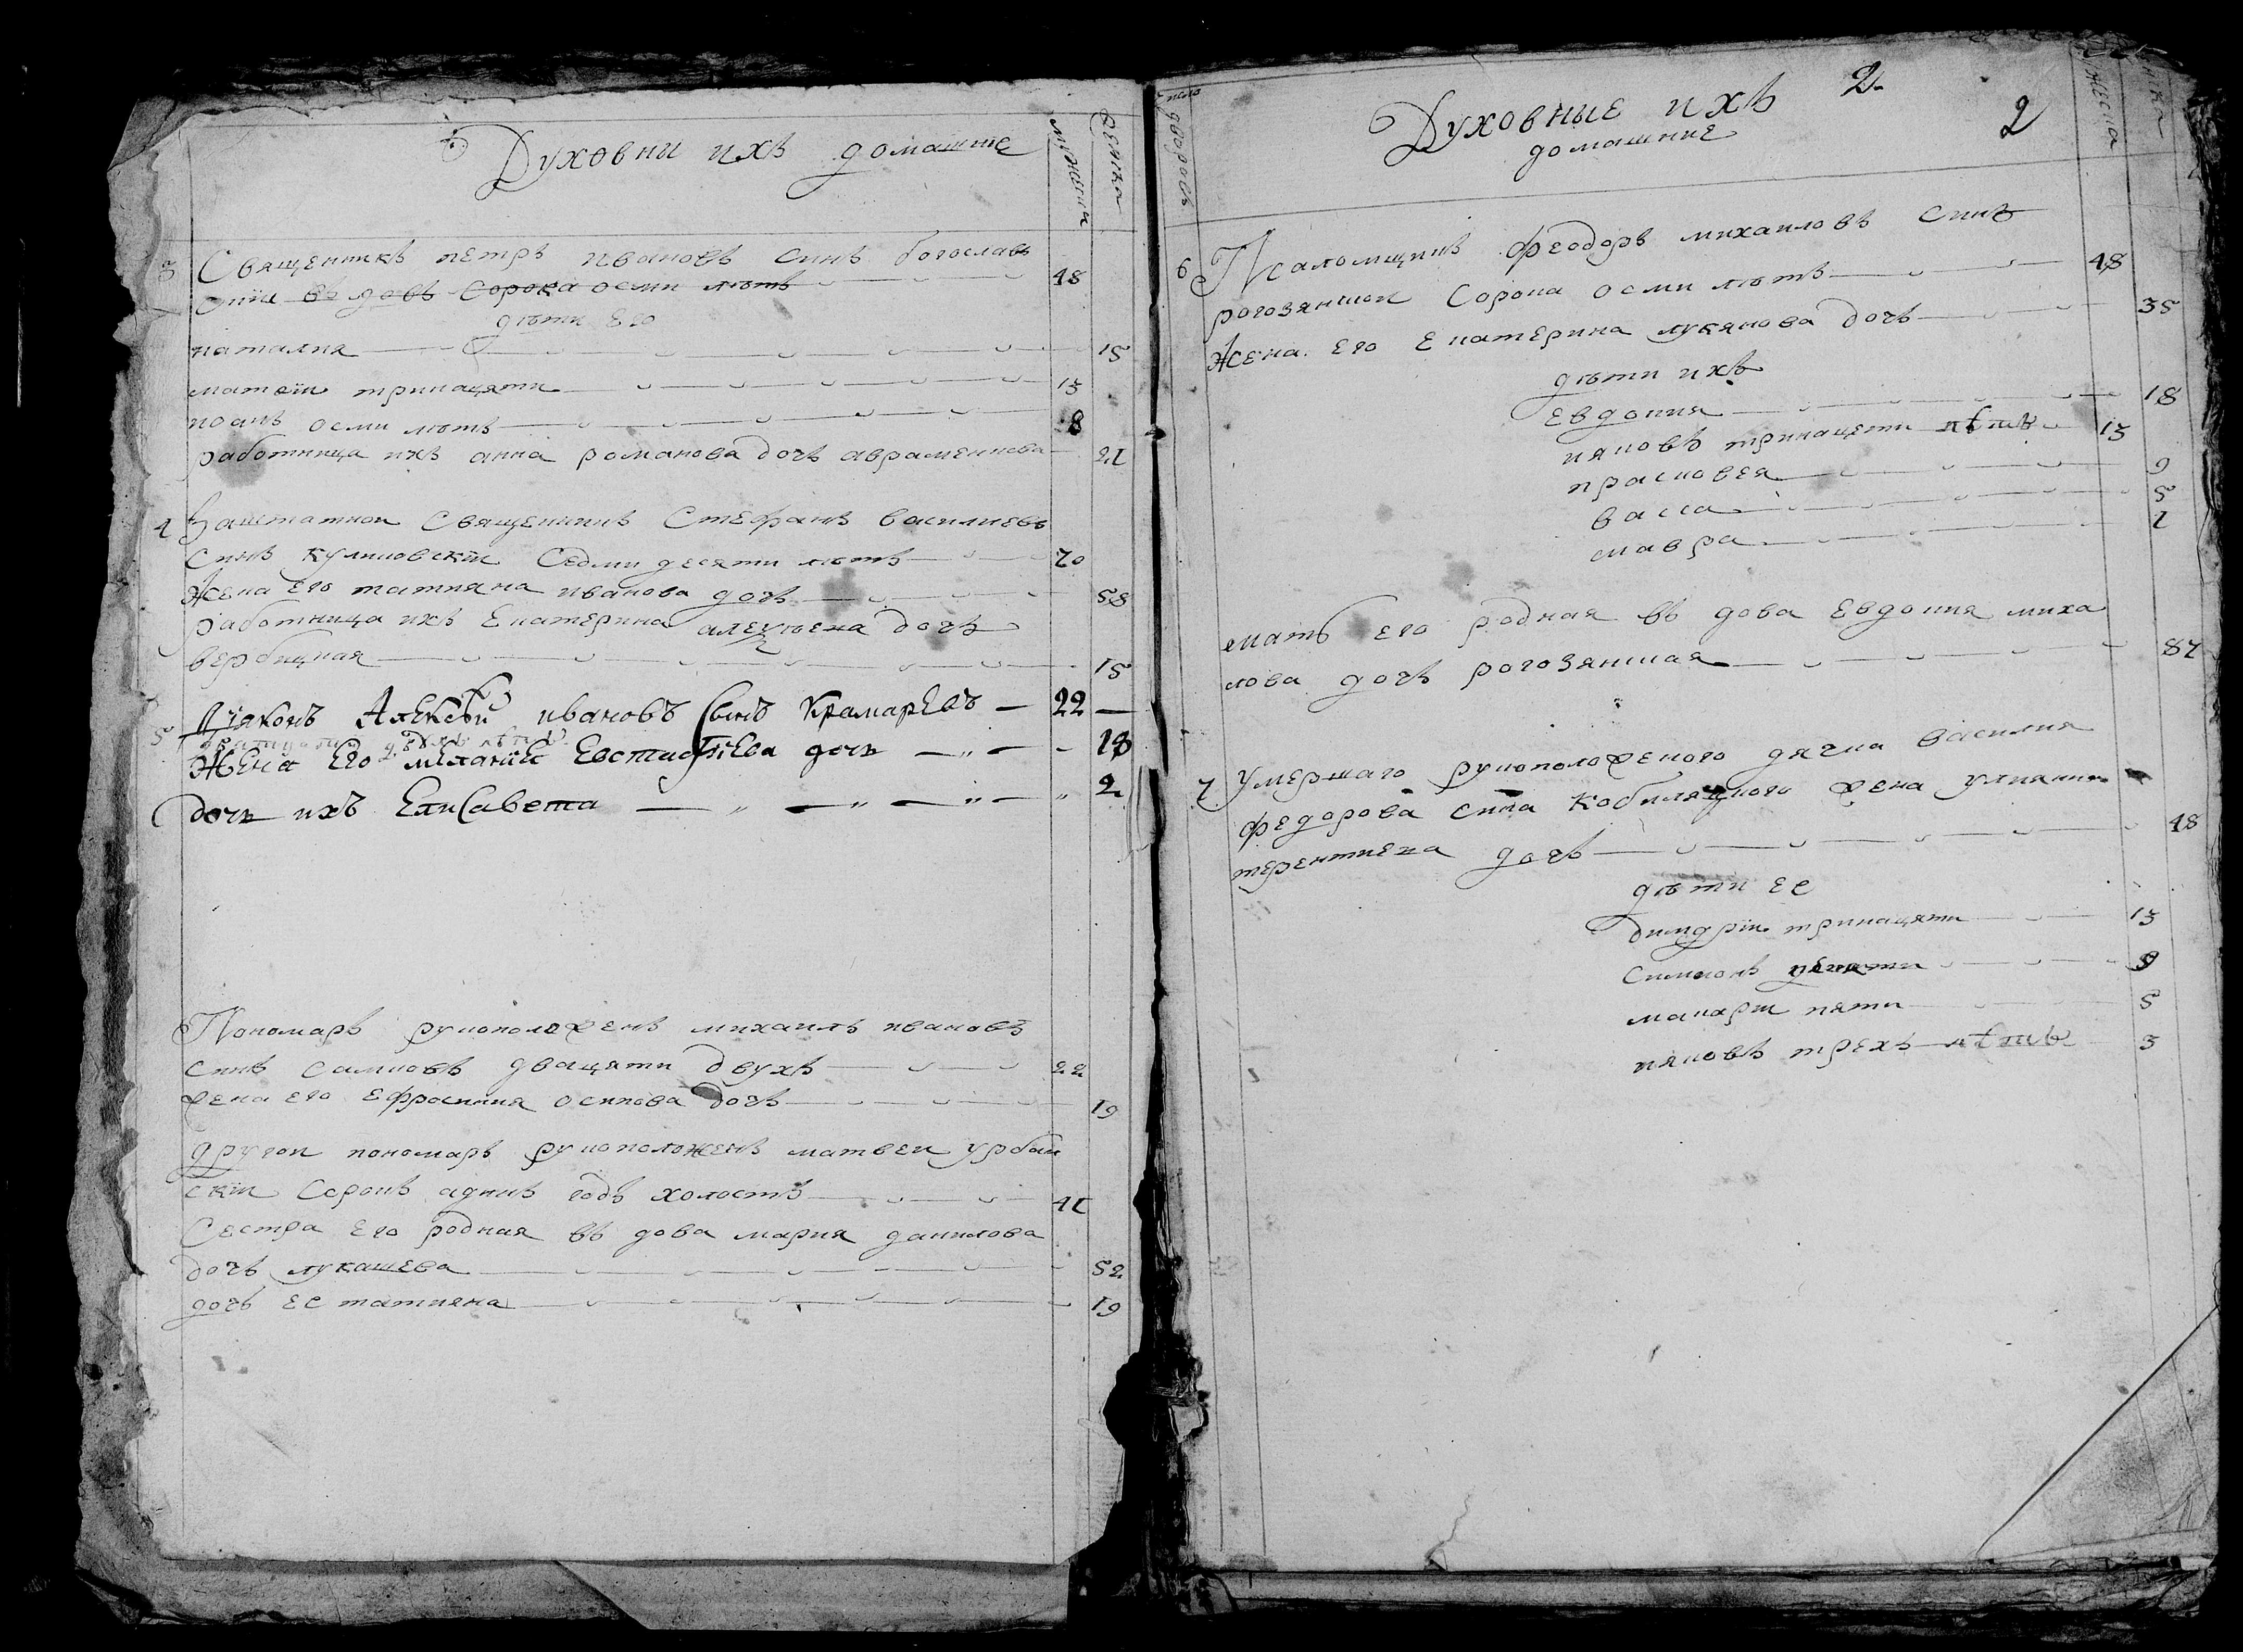 Духовни ихъ домашніе
мужеска
женска
3 Священникъ петръ ивановъ синъ богослав
скии въ довъ сорока осми лѣтъ 48
дѣти его
наталия 15
матѳеи тринацяти 13
иоанъ осми лѣтъ 8
работница ихъ анна романова дочь авраменкова 21
4 Заштатнои священникъ Стефанъ василиевъ
синъ куликовскіи Седмидесяти лѣтъ 70
Жена его татияна иванова дочь 58
работница ихъ Екатерина алеуѣева дочь
вербицкая 15
5 Діяконъ Алексѣй ивановъ сынъ Крамаревъ 22
двацяти двухъ лѣтъ
Жена Его меланія Евстафіева дочь 18
дочь ихъ Елисавета 2
Пономарь рукоположенъ михаилъ ивановъ
синъ самиовъ двацяти двухъ 22
жена его ефросиния осипова дочь 19
другои пономарь рукоположенъ матвеи урбан
скіи сорокъ адинъ годъ холостъ 41
Сестра его родная въ дова мария данилова
дочь лукашева 52
дочь ее татияна 19
число дворовъ
Духовные ихъ 2.
домашние 2
мужеска
женска
6 Псаломщикъ феодоръ михаиловъ синъ
рогозянскои сорока осми лѣтъ 48
Жена его Екатерина лукянова дочь 35
дѣти ихъ
евдокия 18
яковъ тринацети лѣтъ 13
прасковея 9
васса 5
мавра 1
мать его родная въ дова евдокия миха
лова дочь рогозянская 87
7 умершаго рукоположеного дячка василия
федорова сина кобиляцкого жена улияния
терентиева дочь 48
дѣти ее
димдріи тринацяти 13
симионъ девяти 9
макаріи пяти 5
яковъ трехъ лѣтъ 3